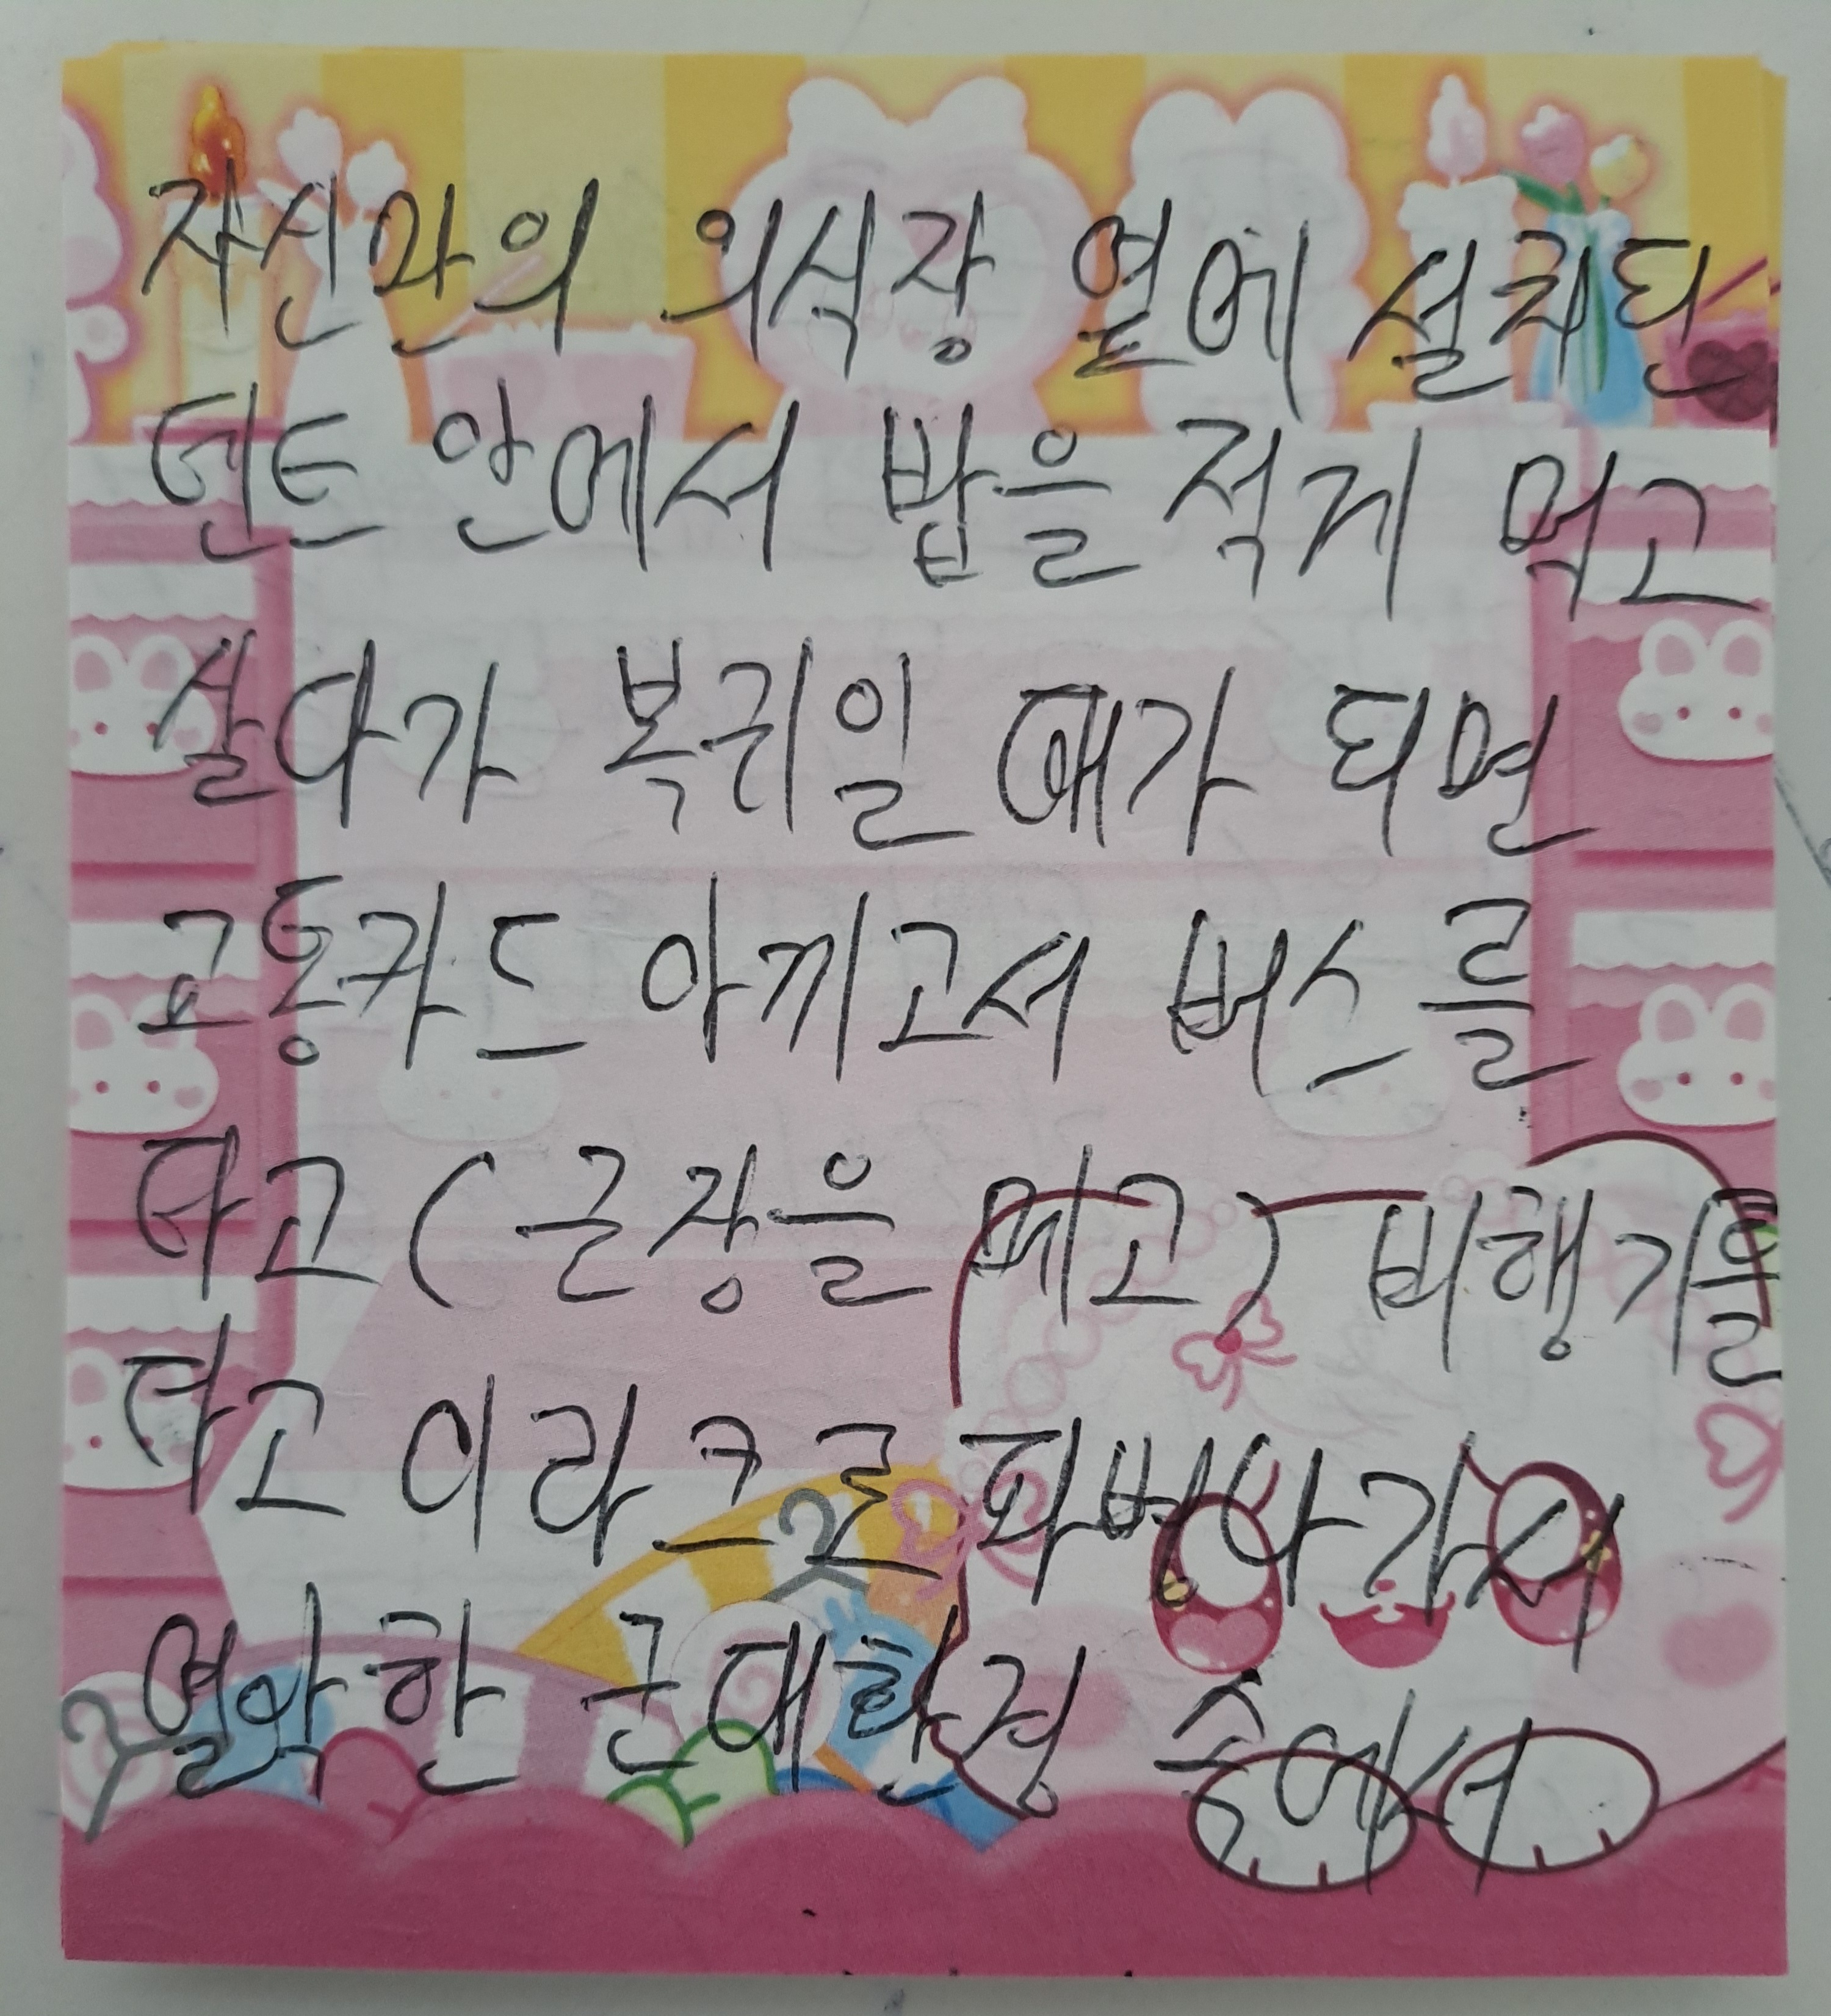 자신만의 의식장 옆에 설치된
텐트 안에서 밥을 적게 먹고
살다가 복귀일 때가 되면
교통카드 아끼고서 버스를
타고 (군장을 메고) 비행기를
타고 이라크로 파병나가서
열악한 군대환경 속에서